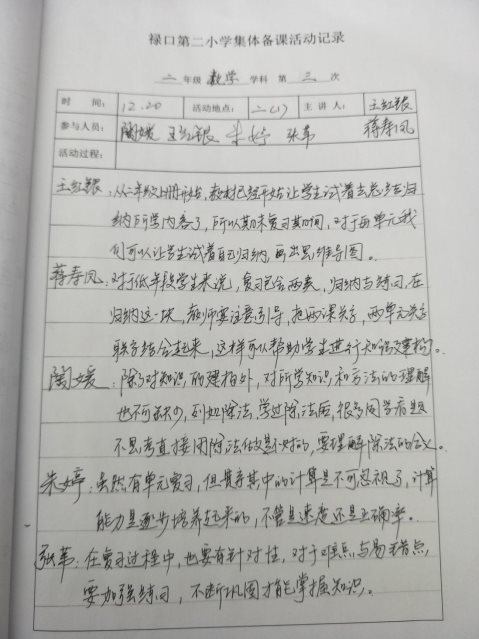 禄口第二小学集体备课活动记录
二 年级 数学 学科 第 三 次
时 间： 12.20 活动地点： 二(1) 主 讲 人： 王红银
参与人员： 陶媛 王红银 朱婷 张苇 蒋寿凤
活动过程：
王红银：从二年级上册开始，教材已经开始让学生试着去总结归
纳所学内容了，所以期末复习期间，对于每单元我
们可以让学生试着自己归纳，画出思维导图。
蒋寿凤：对于低年段学生来说，复习包含两类，归纳与练习，在
归纳这一块，教师要注意引导，把两课关方，两单元关方
联方结合起来，这样可以帮助学生进行知识建构。
陶媛：除了对知识的建构外，对所学知识和方法的理解
也不可缺少，例如除法，学过除法后，很多同学看题
不思考直接用除法做是不对的，要理解除法的含义。
朱婷：虽然有单元复习，但贯穿其中的计算是不可忽视了，计算
能力是逐步培养起来的，不管是速度还是正确率。
张苇：在复习过程中，也要有针对性，对于难点与易错点，
要加强练习，不断巩固才能掌握知识。